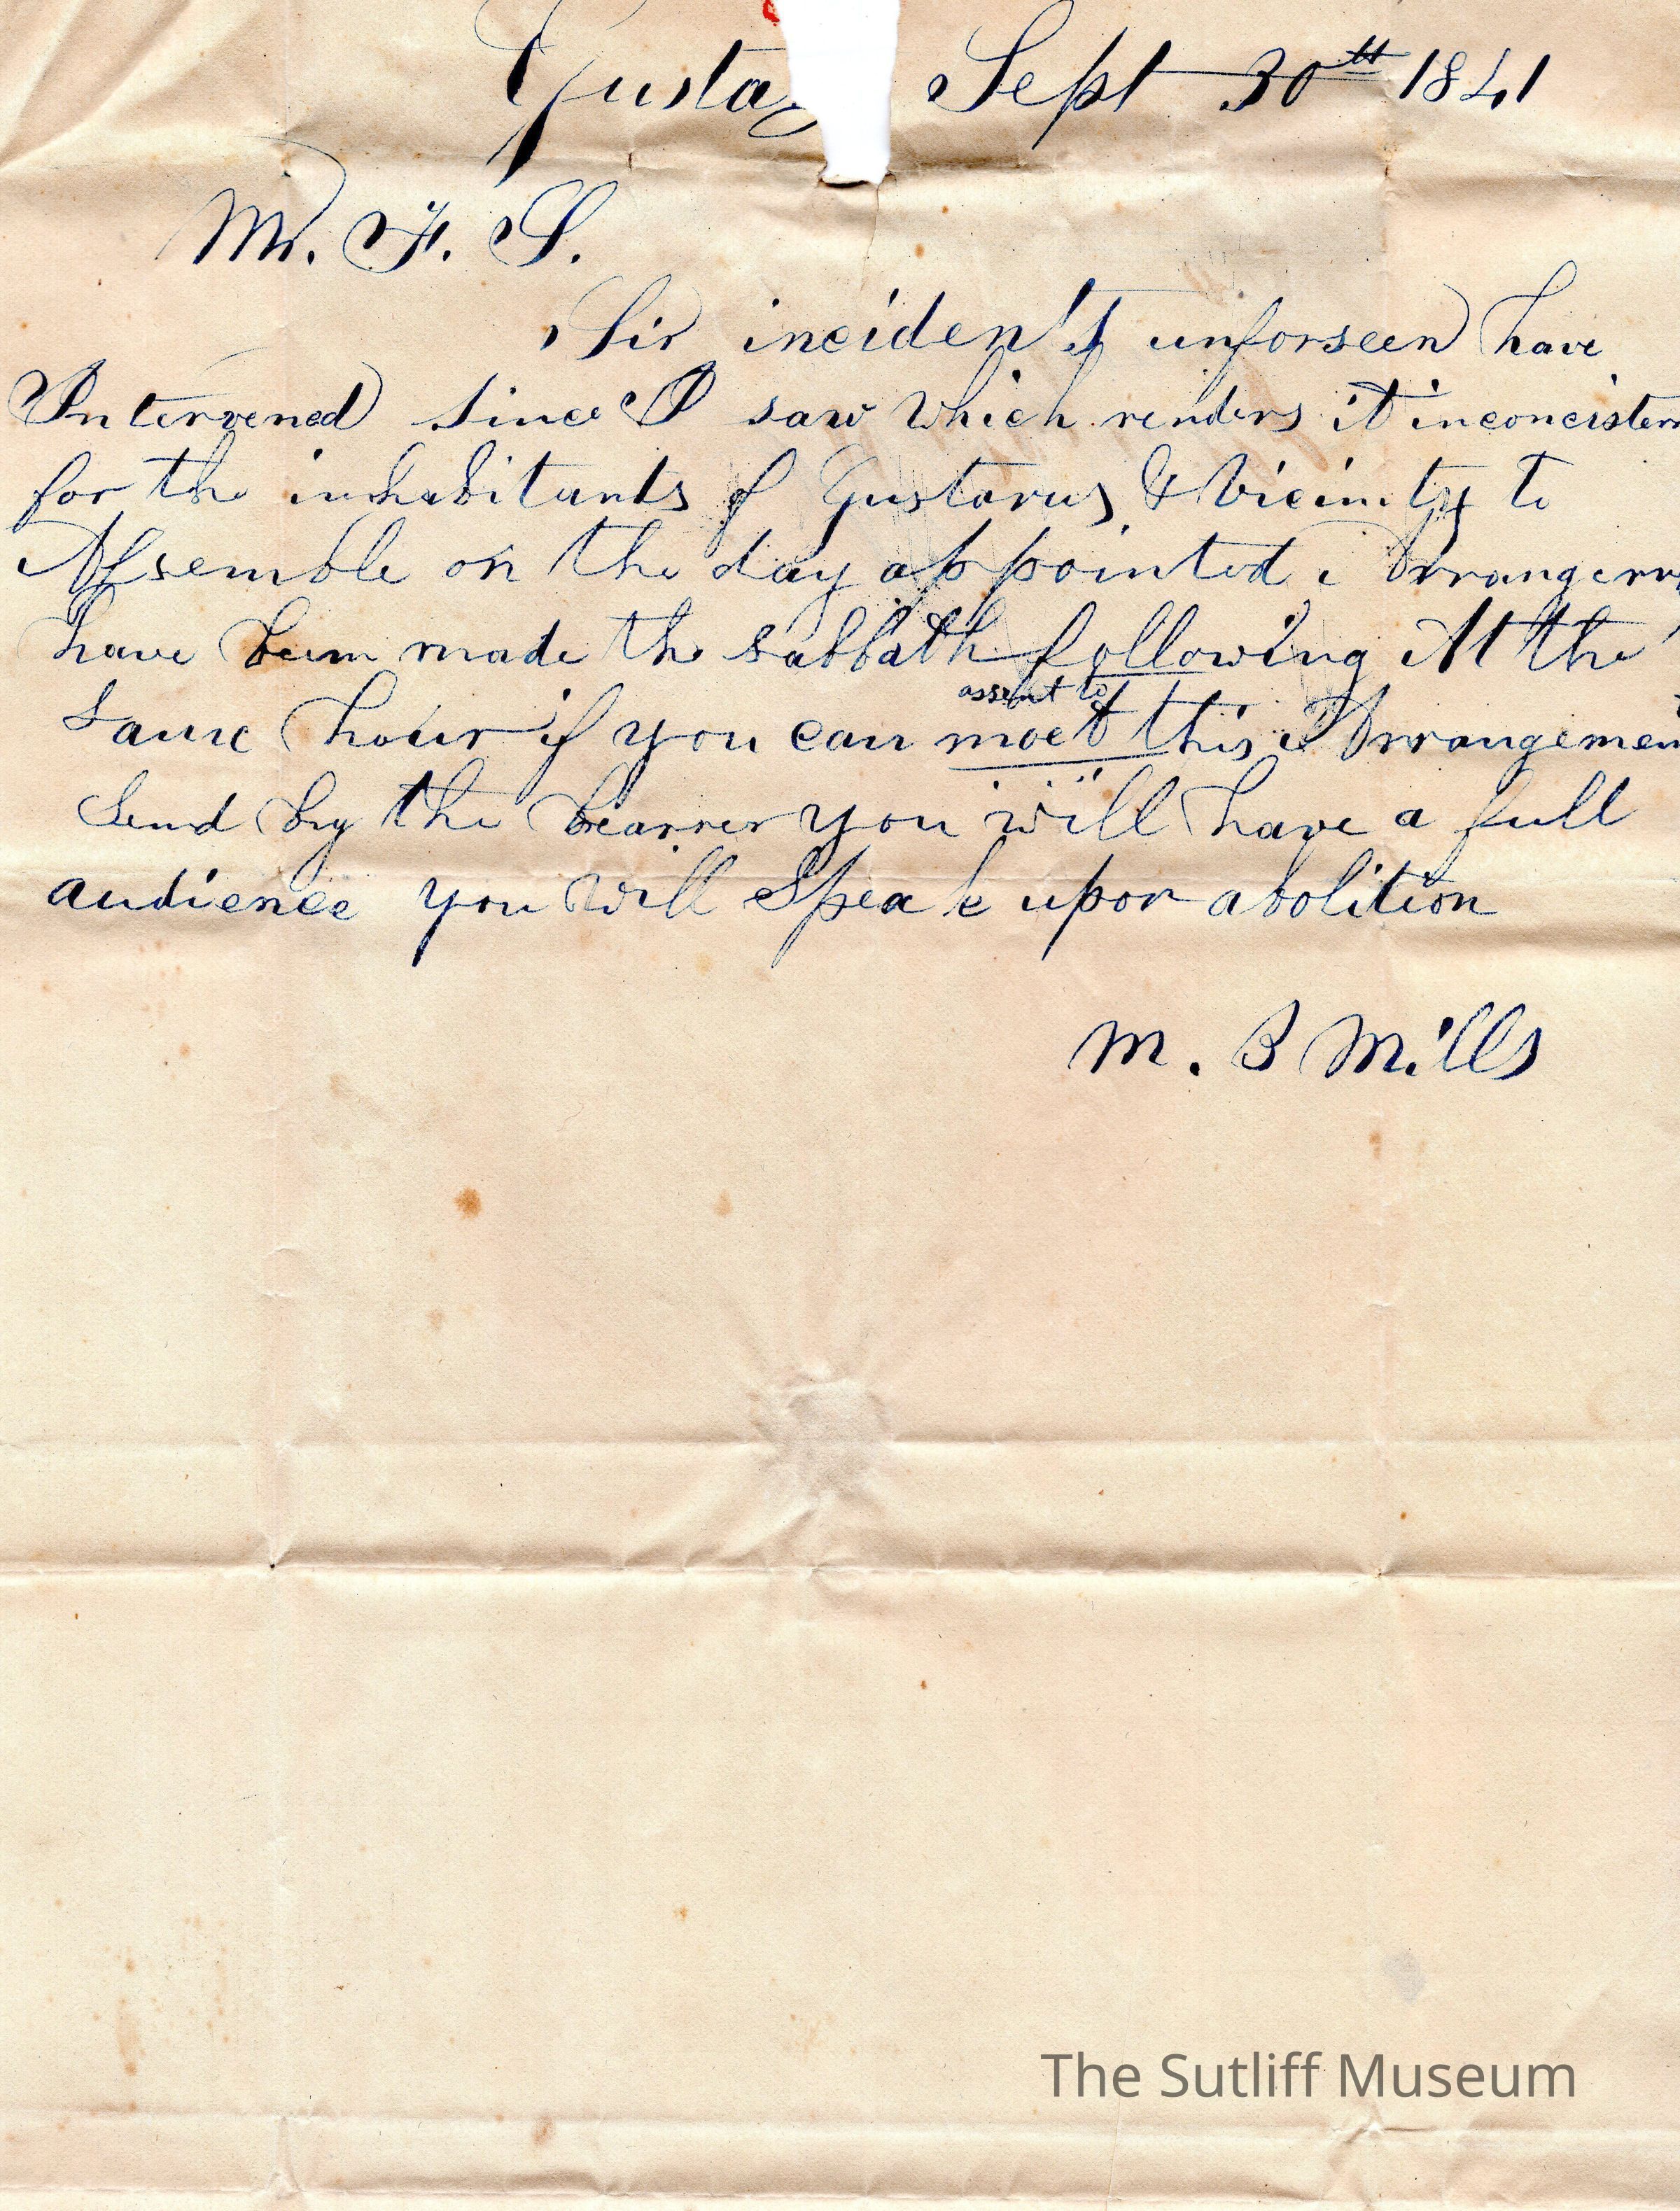 Gusta Sept 30th 1841
Mr. F. S.
Sir incident's unforseen have
Intervened since I saw which renders it inconcisten
for the inhabitants of Gustavus & Vicinity to
Assemble on the day appointed. Arrangem
have been made the sabbath following At the
assent to
same hour if you can meet this Arrangemen
Send by the bearrer you will have a full
audience you will Speak upon abolition
M. B Mills
The Sutliff Museum